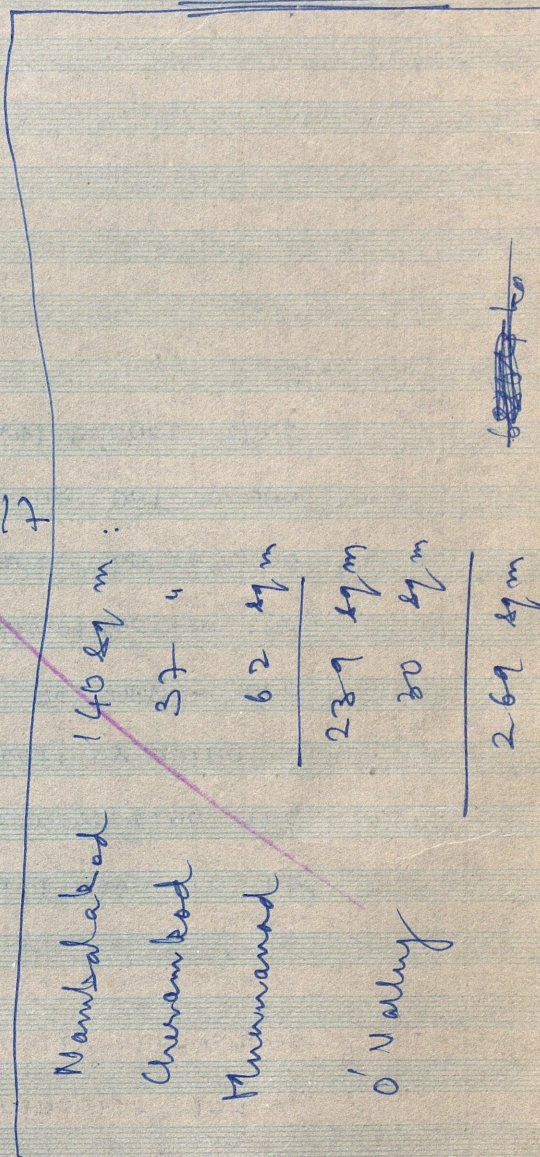 7
Nambalakod 140 sq m :
Cherambod 37 "
Munanad 62 sq m
239 sq m
O' Valley 30 sq m
269 sq m